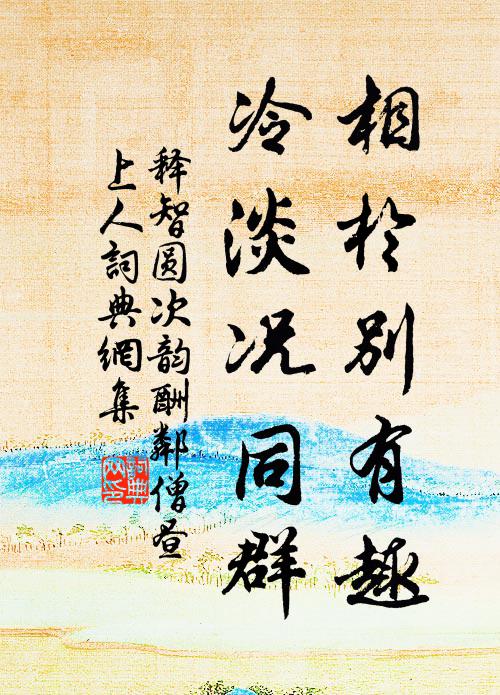 相於別有趣
冷淡况同群
释智圆次韵酬鄰僧昼
上人詞典網集